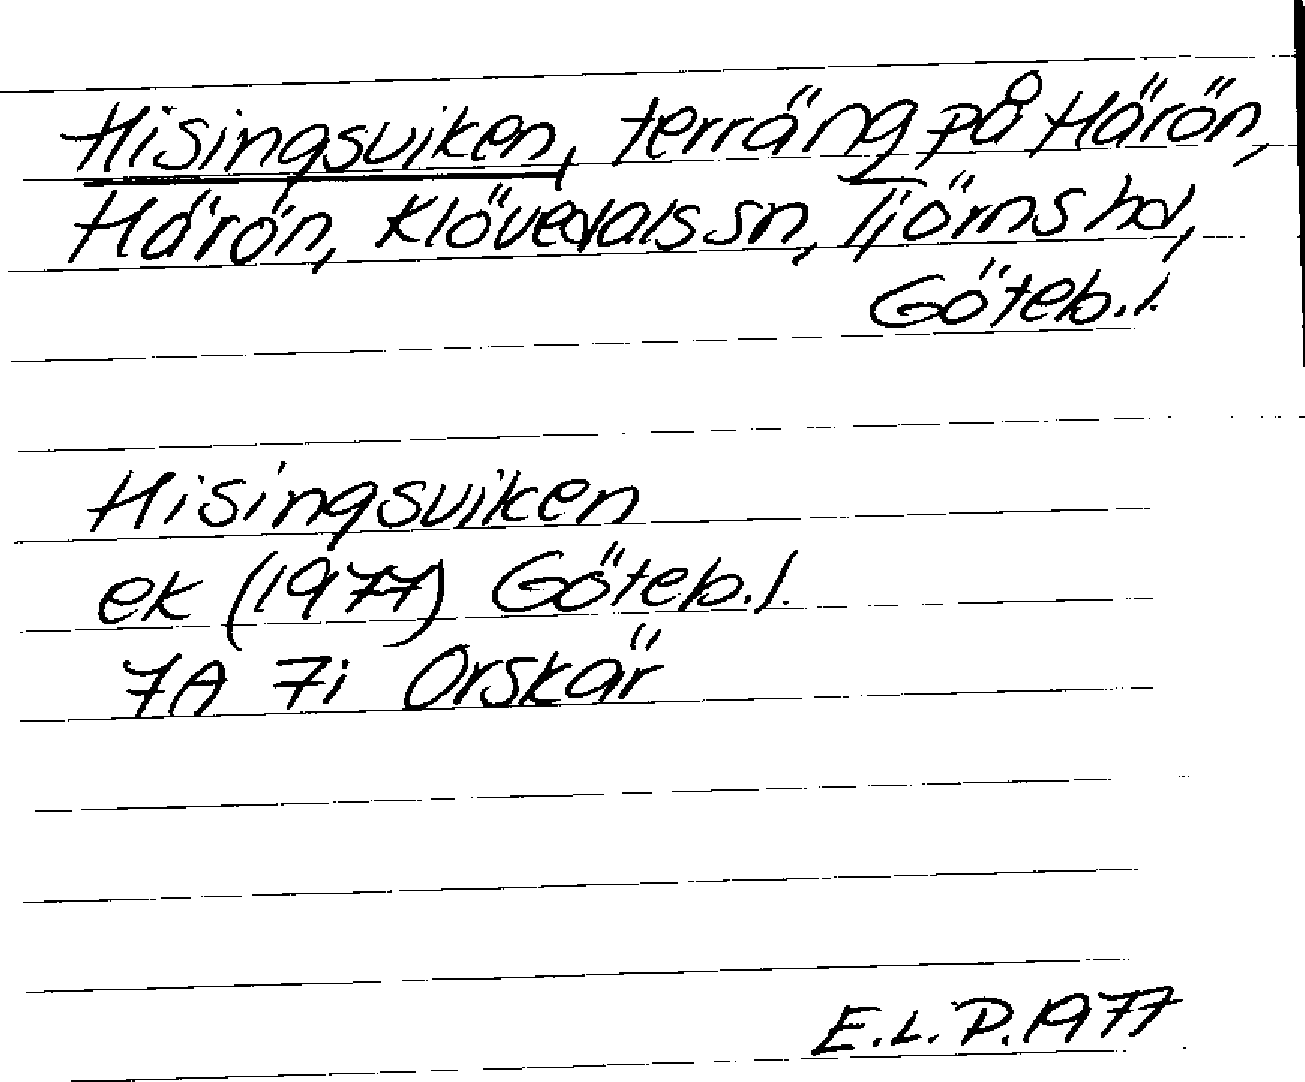 Hisingsviken, terräng på Härön,
Härön, Klövedals sn, Tjörns hd,
Göteb.l.
Hisingsviken
ek (1977) Göteb.l.
7A 7i Orskär
E.L.P. 1977